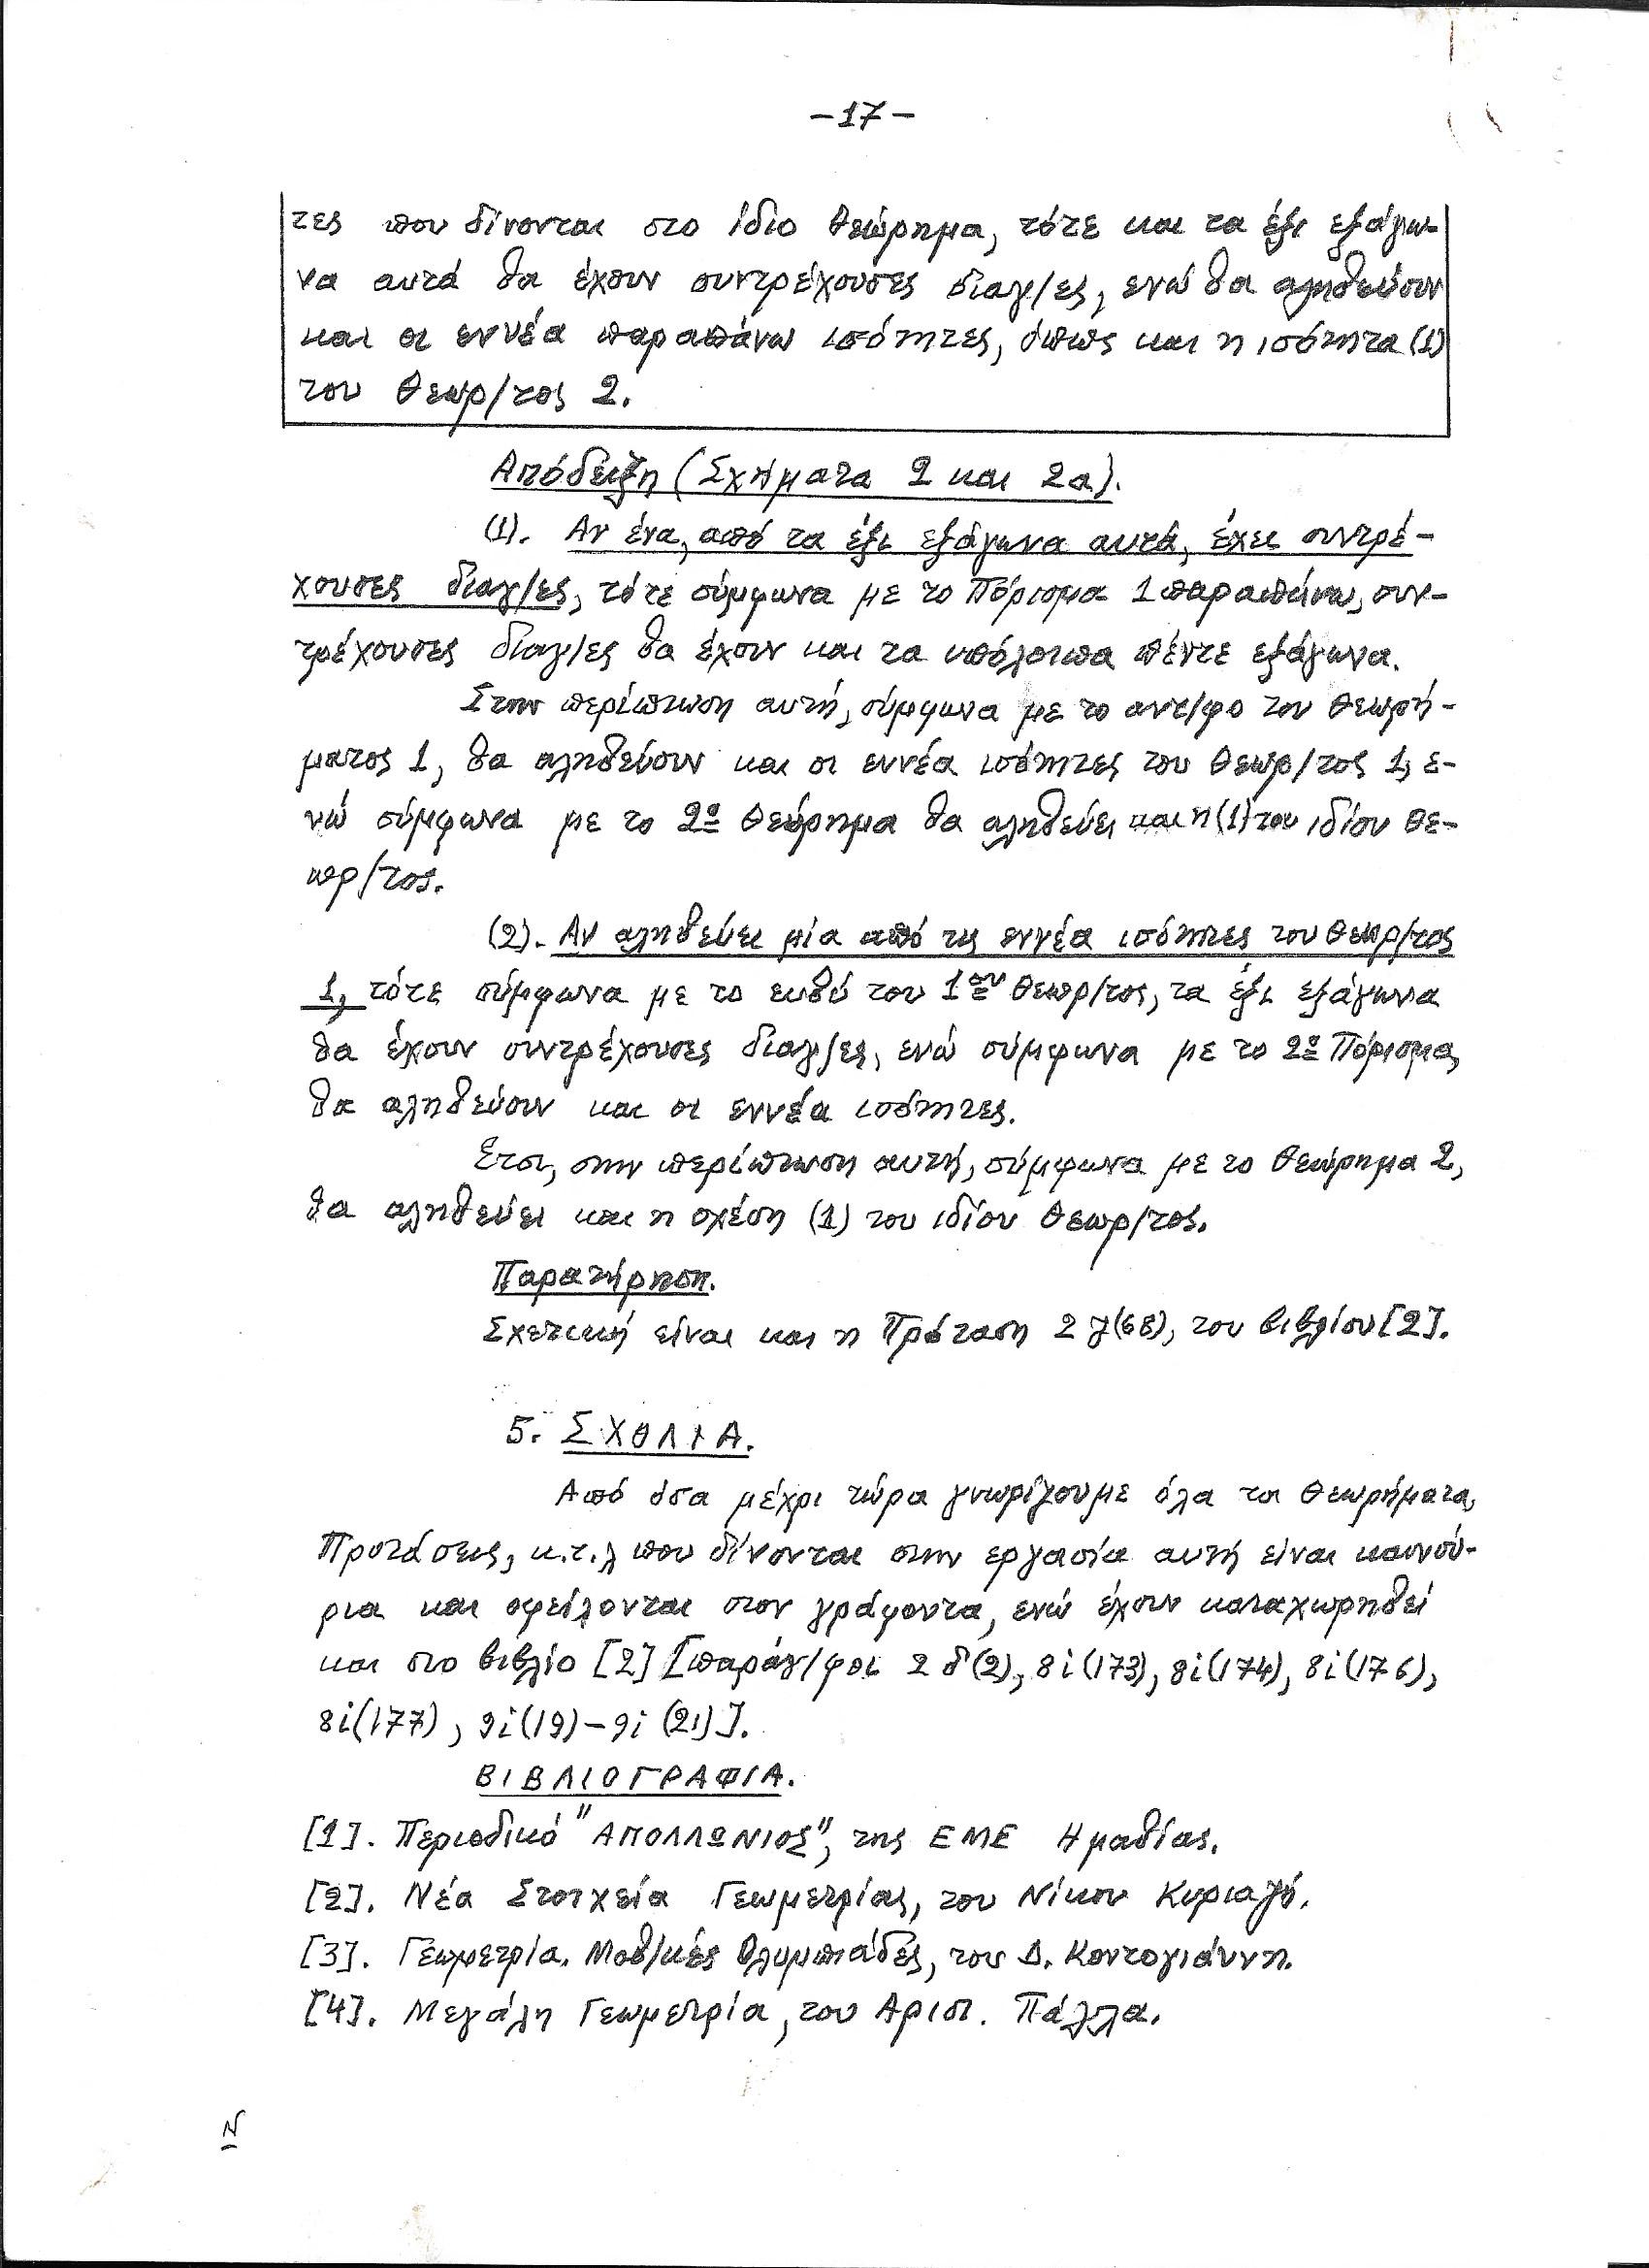 -17-
τες που δίνονται στο ίδιο θεώρημα, τότε και τα έξι εξάγω-
να αυτά θα έχουν συντρέχουσες διαγ/ες, ενώ θα αληθεύουν
και οι εννέα παραπάνω ισότητες, όπως και η ισότητα (1)
του θεωρ/τος 2.
Απόδειξη (Σχήματα 2 και 2α).
(1). Αν ένα, από τα έξι εξάγωνα αυτά, έχει συντρέ-
χουσες διαγ/ες, τότε σύμφωνα με το Πόρισμα 1 παραπάνω, συν-
τρέχουσες διαγ/ες θα έχουν και τα υπόλοιπα πέντε εξάγωνα.
Στην περίπτωση αυτή, σύμφωνα με το αντ/φο του θεωρή-
ματος 1, θα αληθεύουν και οι εννέα ισότητες του θεωρ/τος 1, ε-
νώ σύμφωνα με το 2º θεώρημα θα αληθεύει και η (1) του ιδίου θε-
ωρ/τος.
(2). Αν αληθεύει μία από τις εννέα ισότητες του θεωρ/τος
1, τότε σύμφωνα με το ευθύ του 1ου θεωρ/τος, τα έξι εξάγωνα
θα έχουν συντρέχουσες διαγ/ες, ενώ σύμφωνα με το 2º Πόρισμα,
θα αληθεύουν και οι εννέα ισότητες.
Έτσι, στην περίπτωση αυτή, σύμφωνα με το θεώρημα 2,
θα αληθεύει και η σχέση (1) του ιδίου θεωρ/τος.
Παρατήρηση.
Σχετική είναι και η Πρόταση 2γ(68), του βιβλίου [2].
5. ΣΧΟΛΙΑ.
Από όσα μέχρι τώρα γνωρίζουμε όλα τα θεωρήματα,
Προτάσεις, κ.τ.λ που δίνονται στην εργασία αυτή είναι καινού-
ρια και οφείλονται στον γράφοντα, ενώ έχουν καταχωρηθεί
και στο βιβλίο [2] [παράγ/φοι 2δ(2), 8i(173), 8i(174), 8i(176),
8i(177), 9i(19)-9i(21)].
ΒΙΒΛΙΟΓΡΑΦΙΑ.
[1]. Περιοδικό "ΑΠΟΛΛΩΝΙΟΣ", της ΕΜΕ Ημαθίας.
[2]. Νέα Στοιχεία Γεωμετρίας, του Νίκου Κυριαζή.
[3]. Γεωμετρία. Μαθ/κές Ολυμπιάδες, του Δ. Κοντογιάννη.
[4]. Μεγάλη Γεωμετρία, του Αριστ. Πάλλα.
N